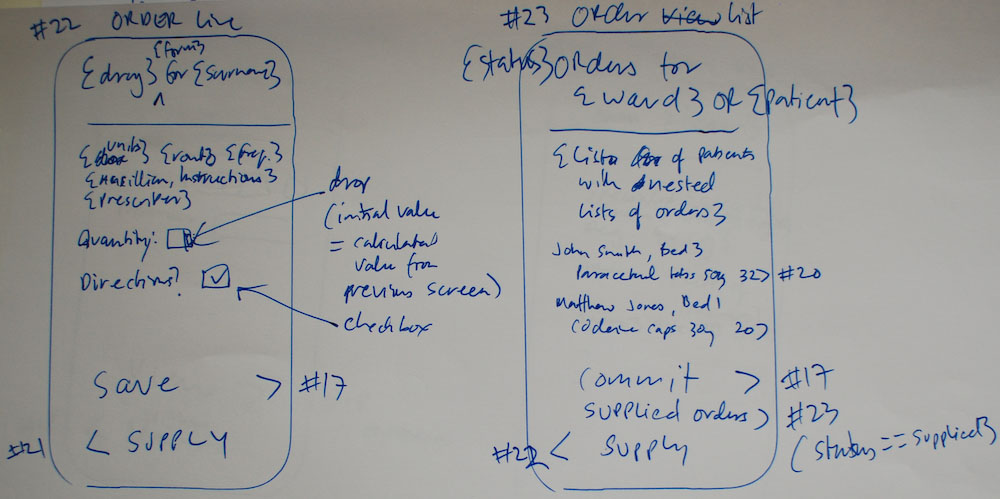 #22 ORDER Line
{form}
{drug} for {surname}
^
{units} {route} {freq.}
{, Instructions}
{Prescriber}
Quantity:
Directions? ✓
drop
(initial value
= calculated
value from
previous screen)
checkbox
Save > #17
#21 < SUPPLY
#23 Order list
{status} Orders for
{ward} OR {patient}
{List of patients
with nested
lists of orders}
John Smith, Bed 3
Paracetamol tabs 32> #20
Matthew Jones, Bed 1
Codeine caps 20>
Commit > #17
Supplied orders> #23
(status == supplied)
#22 < Supply